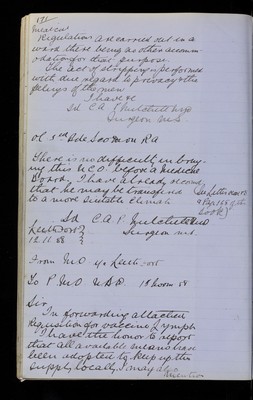 172
Medical
Regulations are carried out in a
ward there being no other accomm-
odation for that purpose.
The act of stripping is performed
with due regard to privacy & the
feelings of the men
I have &c
Sd C A P Mitchell
Surgeon M.S.
Scot Div R A
There is no difficulty in bring-
ing this N.C.O. before a Medical
Board. I have already recom
that he may be transferred
to a more suitable climate
(see letter
& Page 168 of this
book)
Sd C. A. P. Mitchell
Leith Fort
Surgeon M.S.
12.11.88
From M O i/c Leith Fort
To P.M.O. N.B.D.
Sir
In forwarding attached
requisition for vaccine lymph
I have the honor to report
that all available means have
been adopted to keep up the
supply locally. I may also
mention